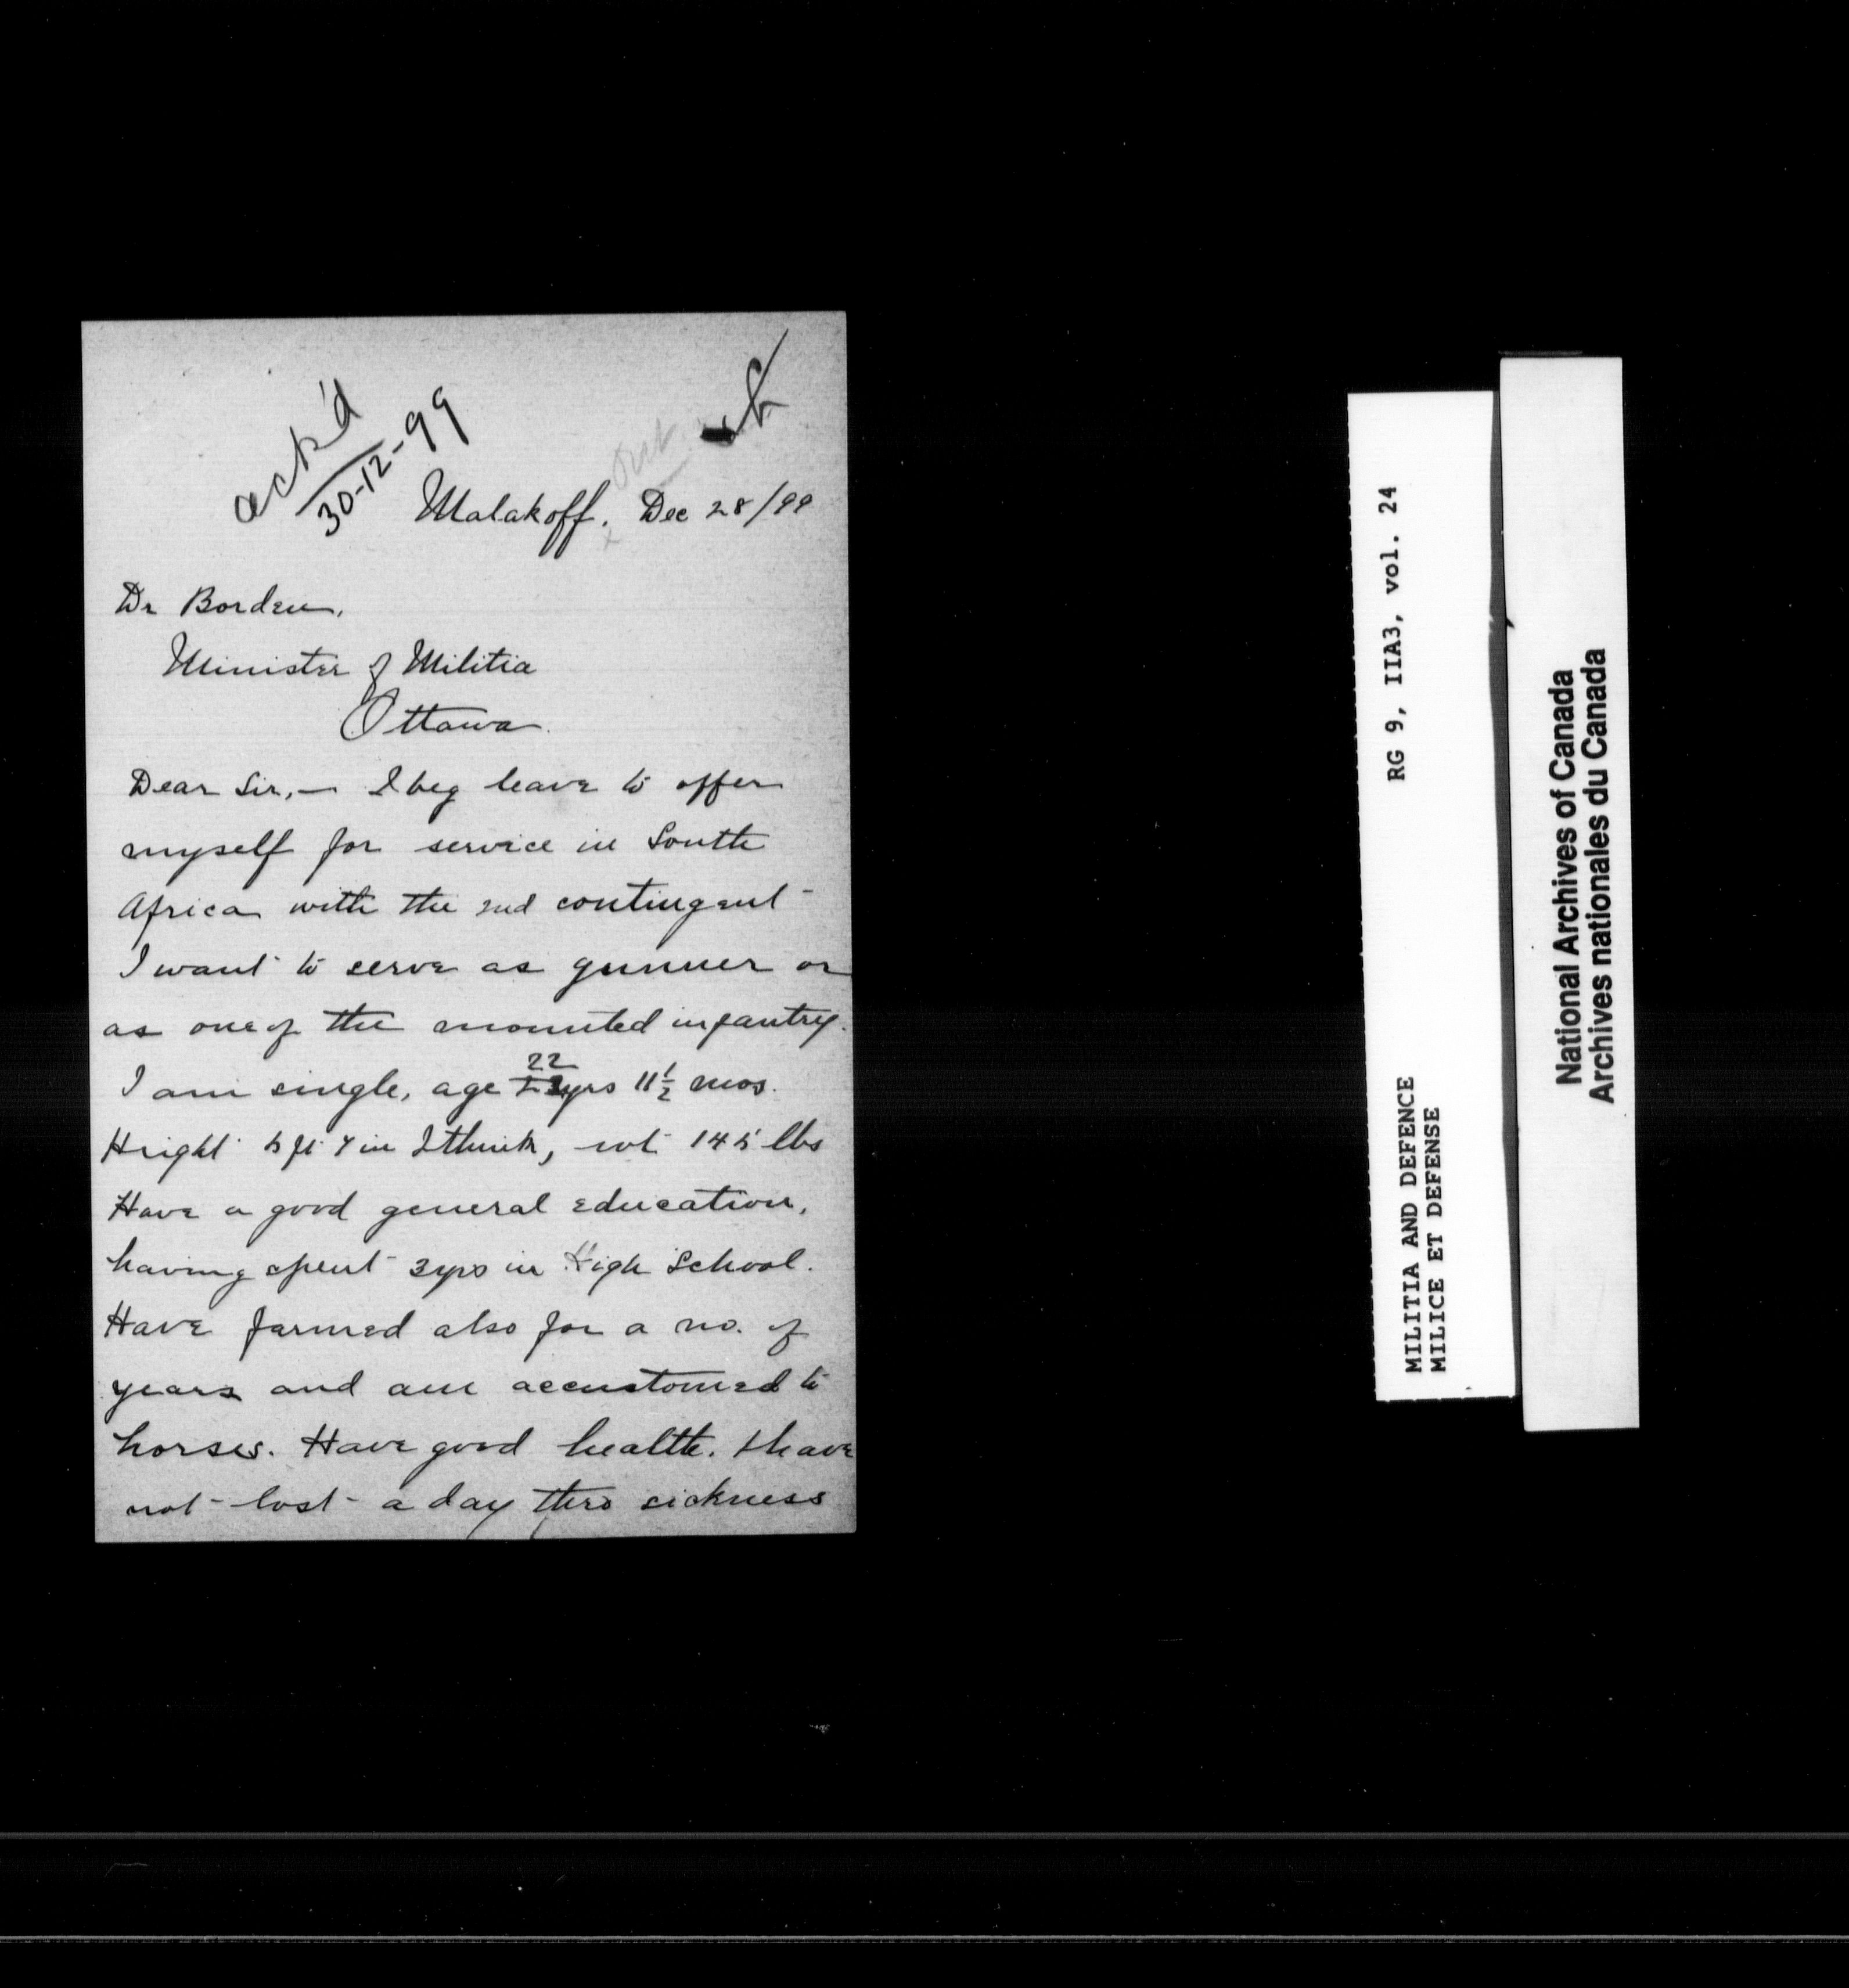 ack'd
30-12-99
Ont
Malakoff. Dec 28/99
Dr Borden,
Minister of Militia
Ottawa.
Dear Sir,— I beg leave to offer
myself for service in South
Africa with the 2nd contingent
I want to serve as gunner or
as one of the mounted infantry.
I am single, age 22 yrs 11½ mos.
Height 5 ft 7 in I think, wt 145 lbs
Have a good general education,
having spent 3 yrs in High School.
Have farmed also for a no. of
years and am accustomed to
horses. Have good health. I have
not lost a day thro sickness
RG 9, IIA3, vol. 24
MILITIA AND DEFENCE
MILICE ET DEFENSE
National Archives of Canada
Archives nationales du Canada